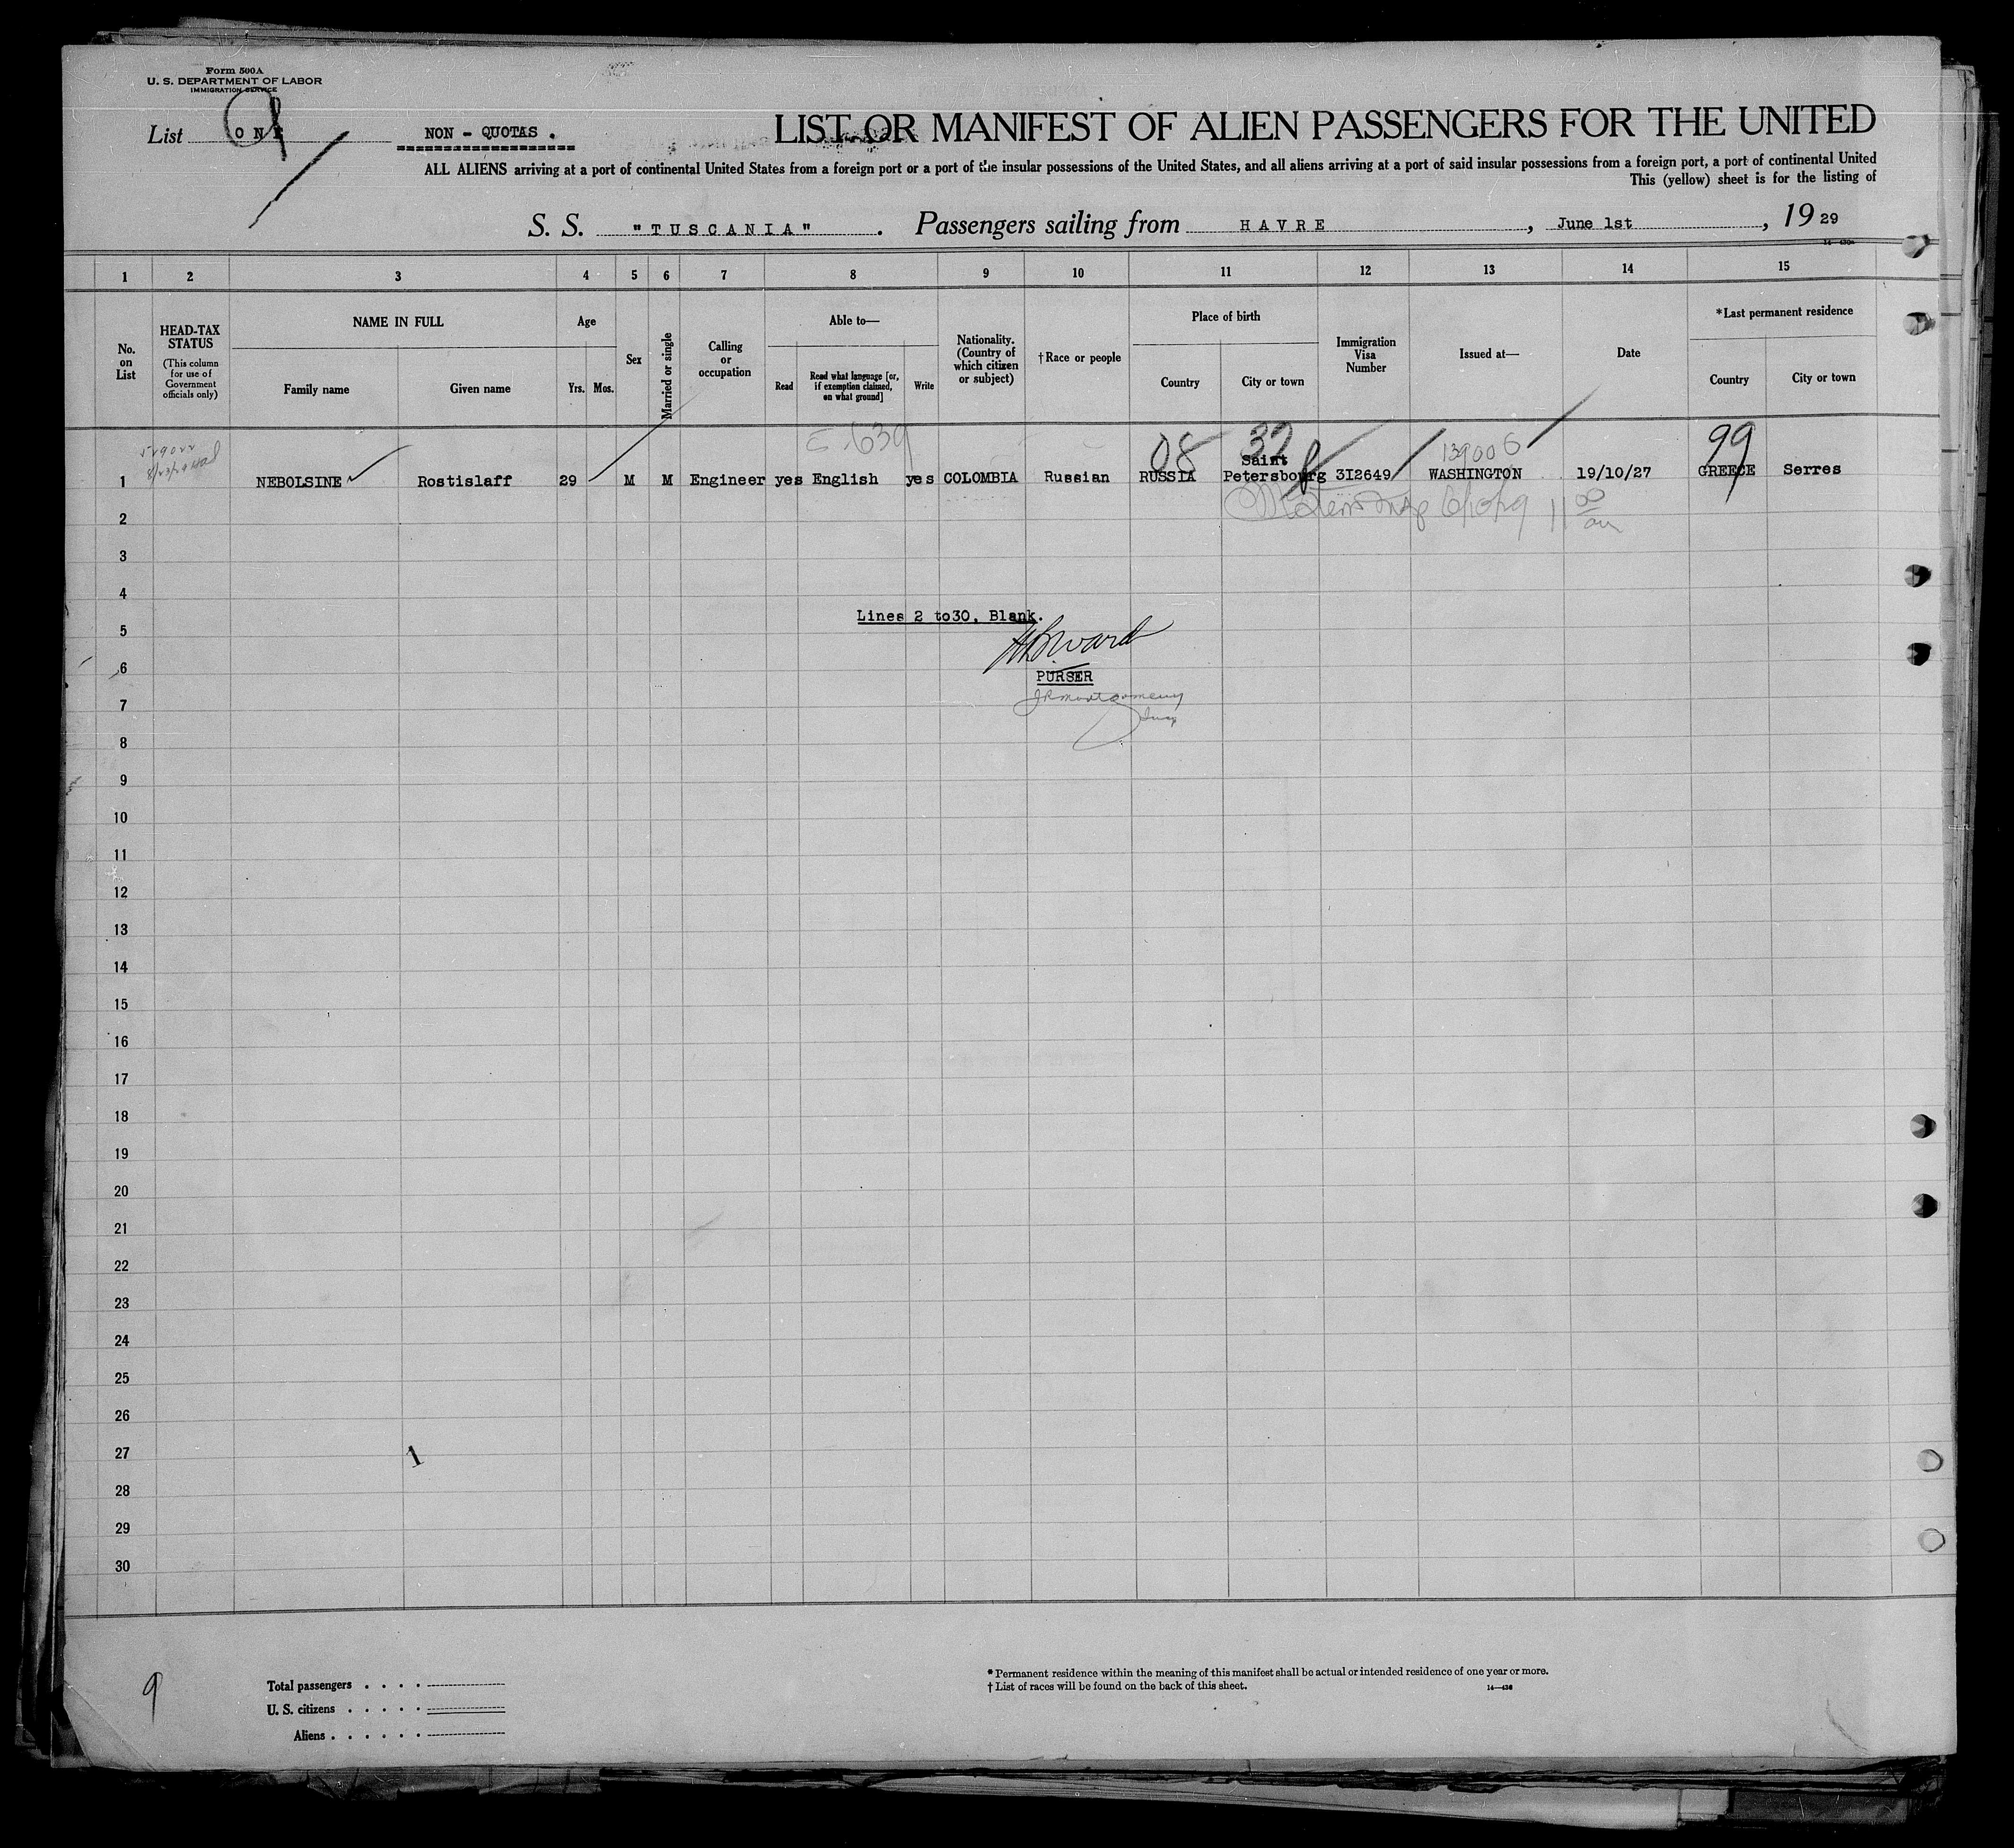 Form 500A
U. S. DEPARTMENT OF LABOR
IMMIGRATION SERVICE
List ONE
NON - QUOTAS.
LIST OR MANIFEST OF ALIEN PASSENGERS FOR THE UNITED
ALL ALIENS arriving at a port of continental United States from a foreign port or a port of the insular possessions of the United States, and all aliens arriving at a port of said insular possessions from a foreign port, a port of continental United
This (yellow) sheet is for the listing of
S. S. "TUSCANIA". Passengers sailing from HAVRE, June 1st, 1929
1 2 3 4 5 6 7 8 9 10 11 12 13 14 15
No. on List
HEAD-TAX STATUS (This column for use of Government officials only)
NAME IN FULL
Family name
Given name
Age
Yrs. Mos.
Sex
Married or single
Calling or occupation
Able to—
Read
Read what language [or, if exemption claimed, on what ground]
Write
Nationality. (Country of which citizen or subject)
†Race or people
Place of birth
Country
City or town
Immigration Visa Number
Issued at—
Date
*Last permanent residence
Country
City or town
08 32 139006 99
1 NEBOLSINE Rostislaff 29 M M Engineer yes English yes COLOMBIA Russian RUSSIA Saint Petersbourg 3I2649 WASHINGTON 19/10/27 GREECE Serres
2
3
4
Lines 2 to30, Blank.
5
6
PURSER
7
8
9
10
11
12
13
14
15
16
17
18
19
20
21
22
23
24
25
26
27
1
28
29
30
9
Total passengers . . . .
U. S. citizens . . . . .
Aliens . . . . . .
*Permanent residence within the meaning of this manifest shall be actual or intended residence of one year or more.
†List of races will be found on the back of this sheet.
14—436